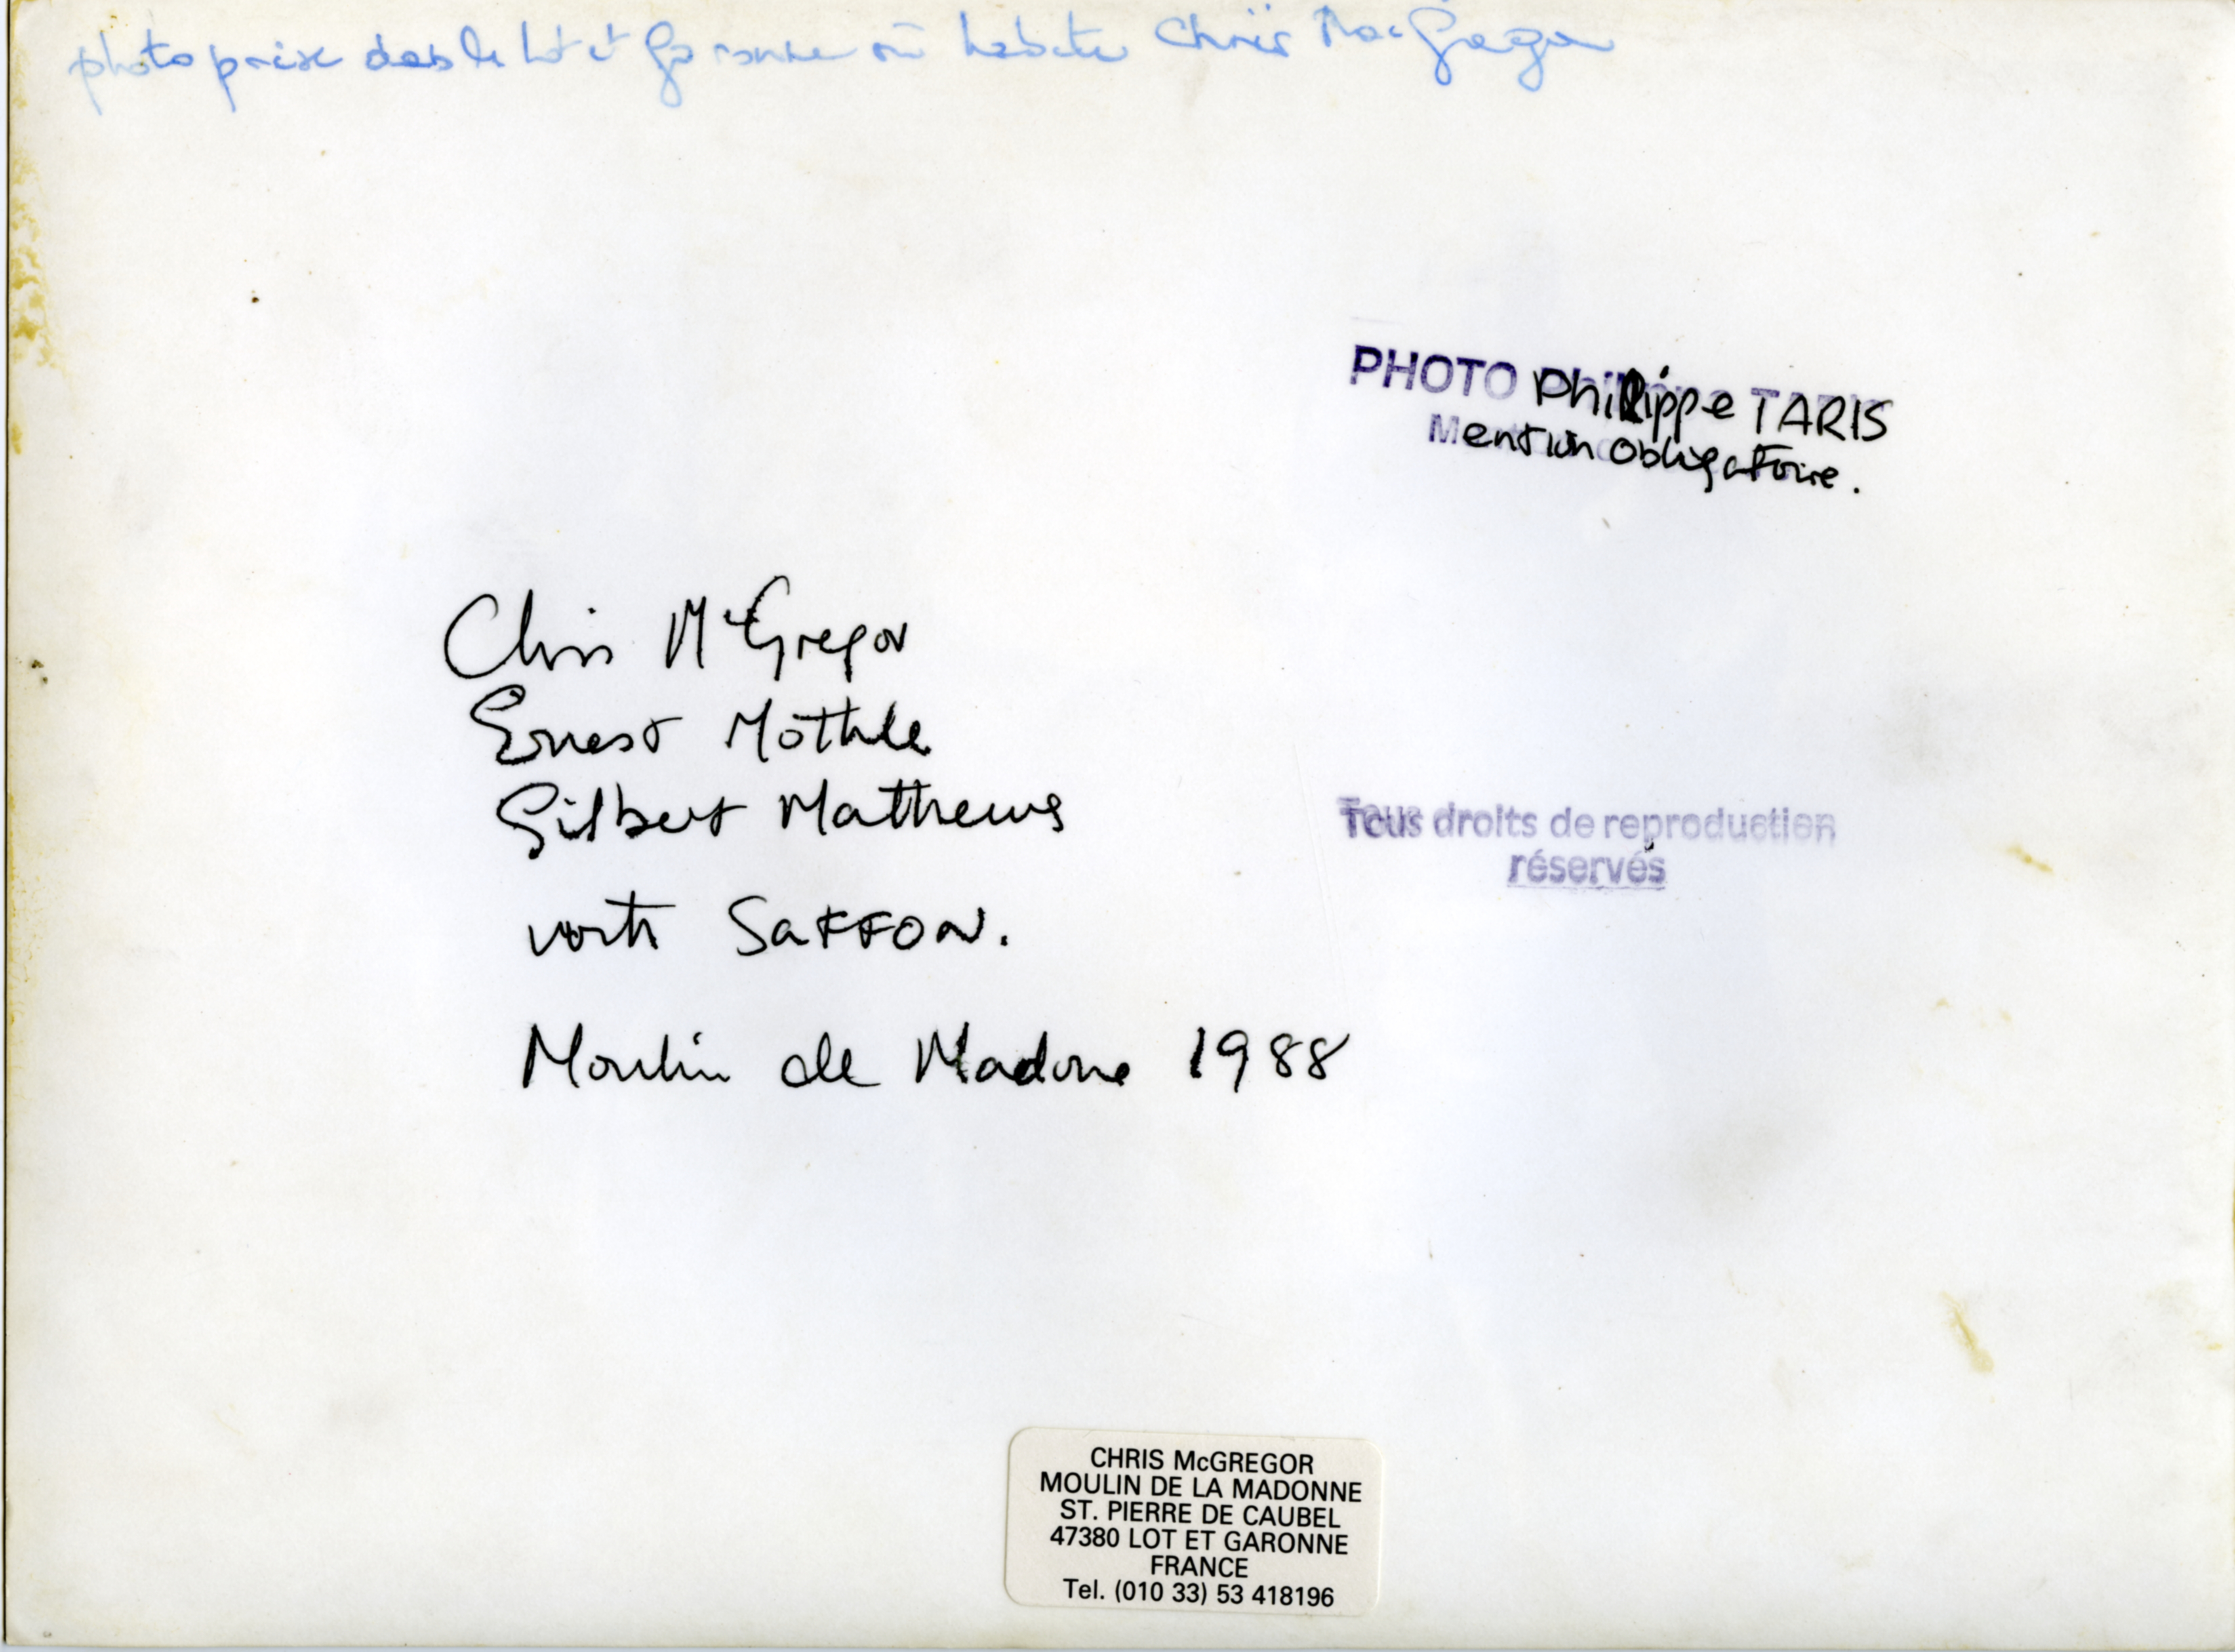 photo prise dans le Lot et Garonne où habite Chris MacGregor
PHOTO Philippe TARIS
Mention Obligatoire.
Chris McGregor
Ernest Mothle
Gilbert Mathews
with SAFFON.
Tous droits de reproduction
réservés
Moulin de Madone 1988
CHRIS McGREGOR
MOULIN DE LA MADONNE
ST. PIERRE DE CAUBEL
47380 LOT ET GARONNE
FRANCE
Tel. (010 33) 53 418196